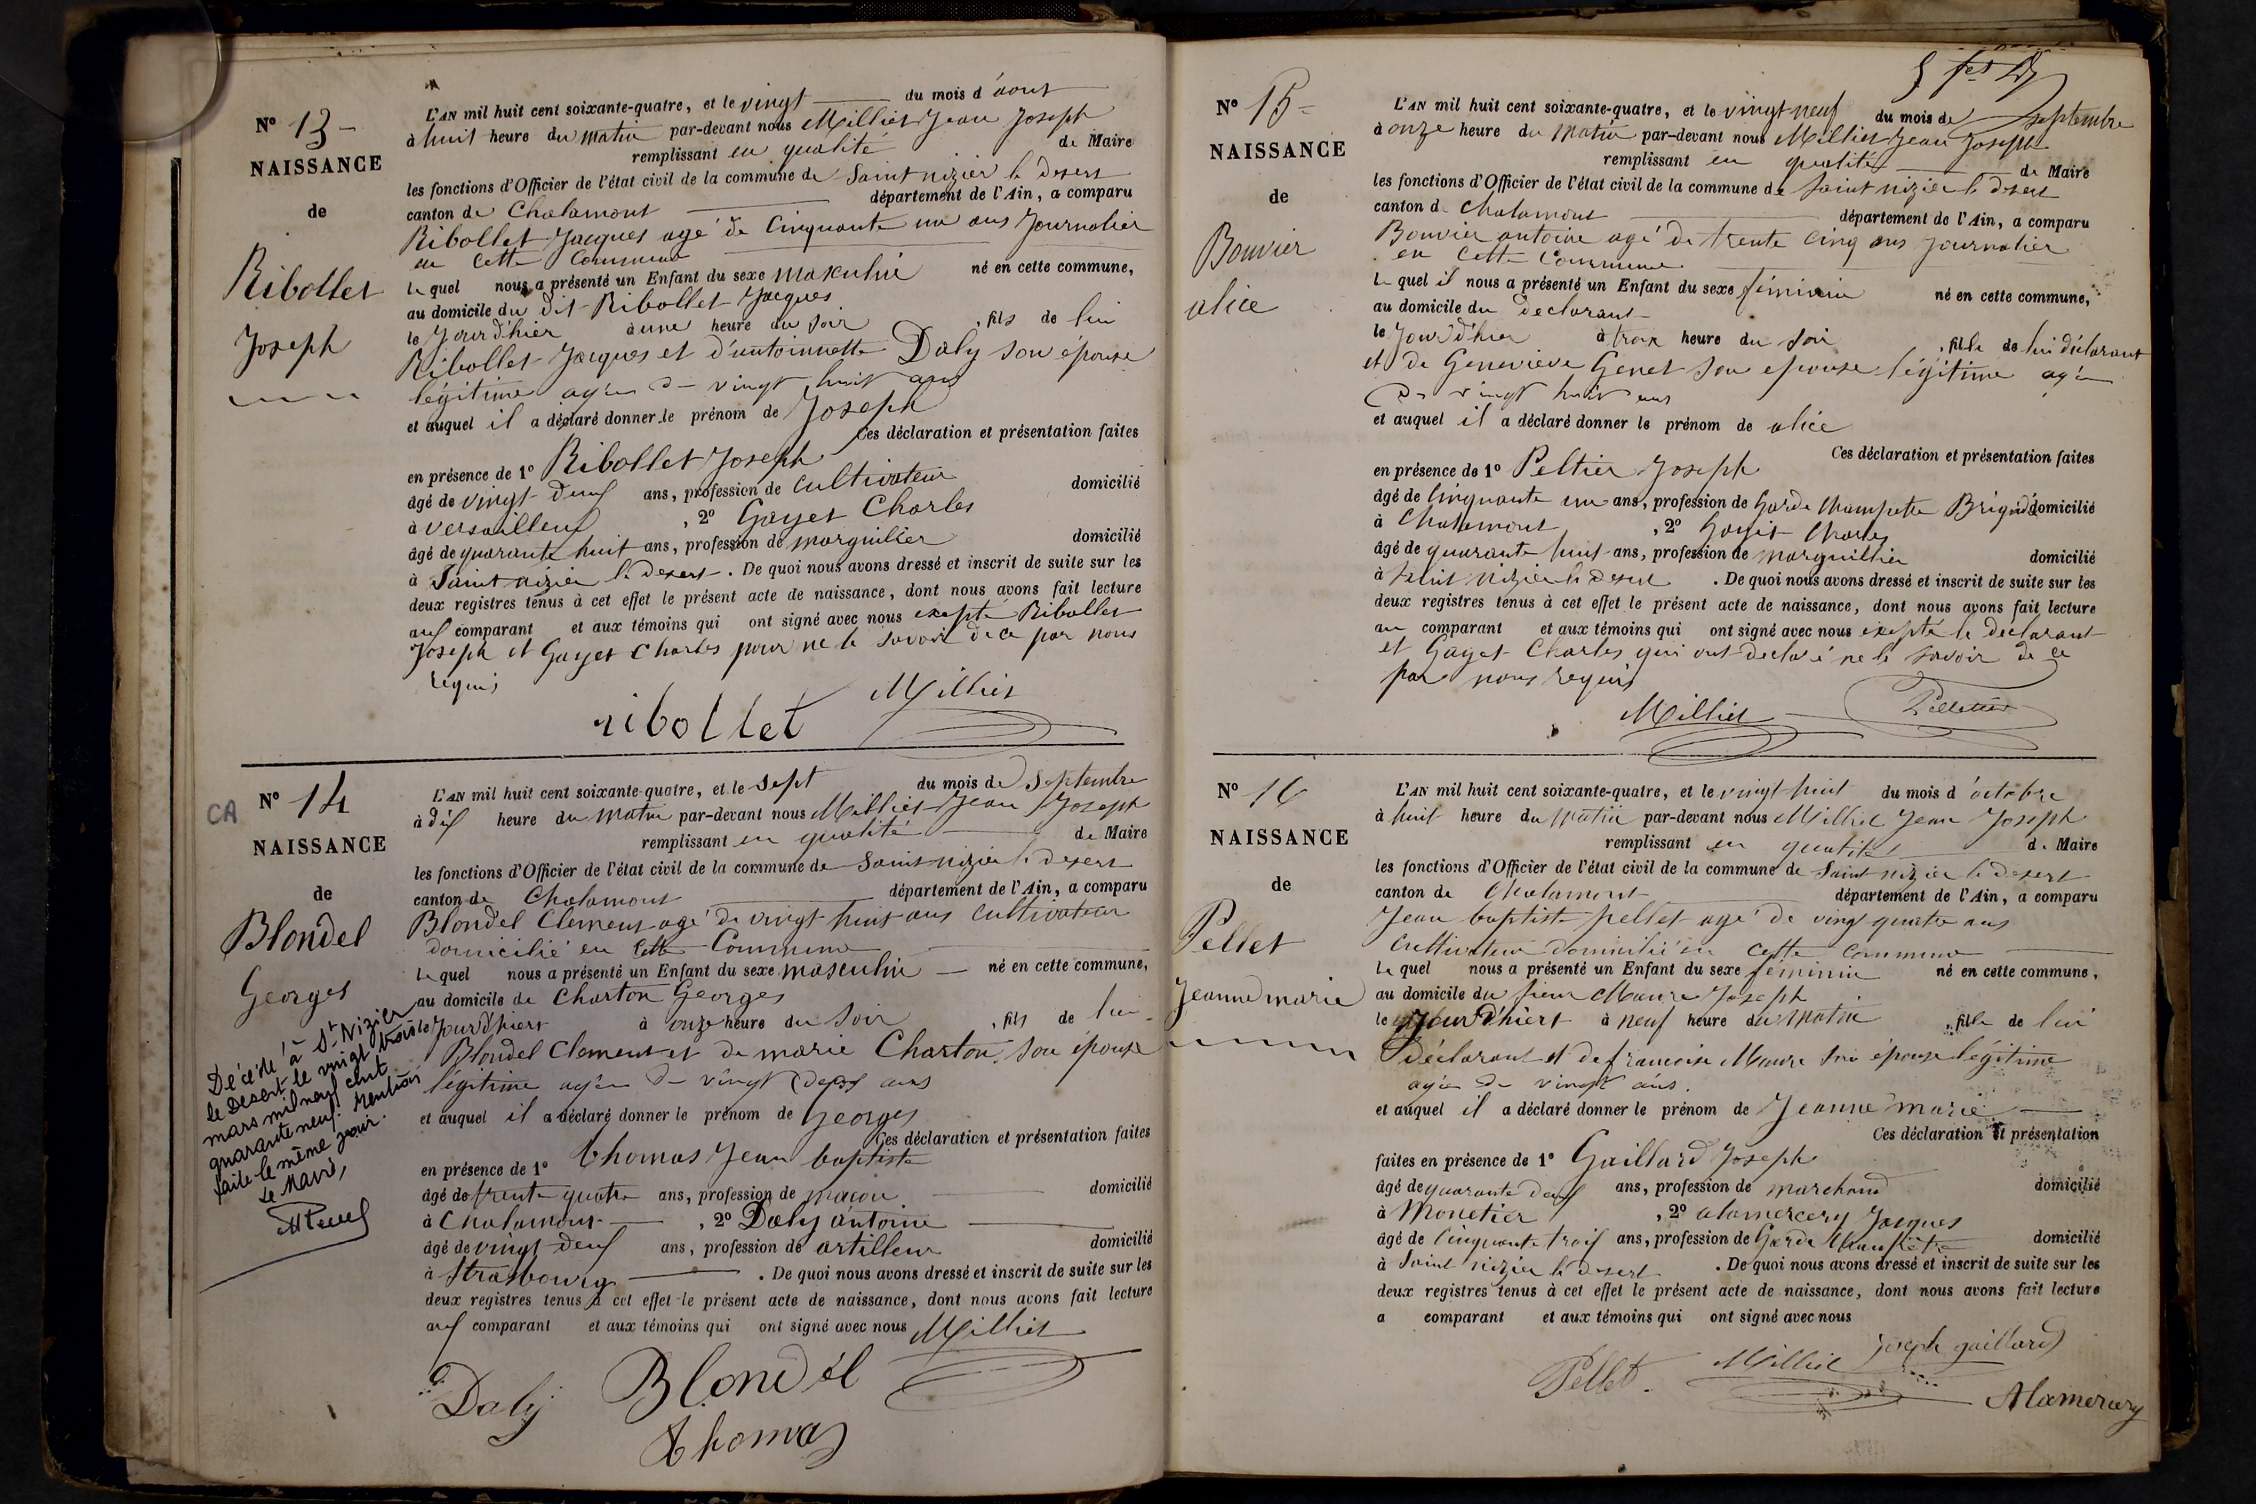 N° 13
NAISSANCE
de
Ribollet
Joseph
L'AN mil huit cent soixante-quatre, et le vingt du mois d'aout
à huit heure du matin par-devant nous Milliet Jean Joseph
remplissant en qualité de Maire
les fonctions d'Officier de l'état civil de la commune de Saint nizier le desert
canton de Chalamont département de l'Ain, a comparu
Ribollet Jacques agé de Cinquante un ans Journalier
en cette Commune
le quel nous a présenté un Enfant du sexe masculin né en cette commune,
au domicile du dit Ribollet Jacques
le Jour d'hier à une heure du soir, fils de lui
Ribollet Jacques et d'antoinnette Daly son épouse
légitime agée de vingt huit ans
et auquel il a déclaré donner le prénom de Joseph
Ces déclaration et présentation faites
en présence de 1° Ribollet Joseph
âgé de vingt deux ans, profession de cultivateur domicilié
à versailleux, 2° Gayet Charles
âgé de quarante huit ans, profession de marguillier domicilié
à Saint nizier le desert. De quoi nous avons dressé et inscrit de suite sur les
deux registres tenus à cet effet le présent acte de naissance, dont nous avons fait lecture
aux comparant et aux témoins qui ont signé avec nous exepté Ribollet
Joseph et Gayet Charles pour ne le savoir de ce par nous
requis
ribollet Milliet
CA
N° 14
NAISSANCE
de
Blondel
Georges
Décédé à St Nizier
le Desert le vingt trois
mars mil neuf cent
quarante neuf. Mention
faite le même jour.
Le Maire,
L'AN mil huit cent soixante-quatre, et le sept du mois de Septembre
à dix heure du matin par-devant nous Milliet Jean Joseph
remplissant en qualité de Maire
les fonctions d'Officier de l'état civil de la commune de Saint nizier le desert
canton de Chalamont département de l'Ain, a comparu
Blondel Clement agé de vingt huit ans cultivateur
domicilié en cette Commune
le quel nous a présenté un Enfant du sexe masculin né en cette commune,
au domicile de Charton Georges
le Jour d'hiers à onze heure du soir, fils de lui
Blondel Clement et de marie Charton, son épouse
légitime agée de vingt deux ans
et auquel il a déclaré donner le prénom de Georges
Ces déclaration et présentation faites
en présence de 1° thomas Jean baptiste
âgé de trente quatre ans, profession de maçon domicilié
à Chalamont, 2° Daly antoine
âgé de vingt deux ans, profession de artilleur domicilié
à Strasbourg. De quoi nous avons dressé et inscrit de suite sur les
deux registres tenus à cet effet le présent acte de naissance, dont nous avons fait lecture
aux comparant et aux témoins qui ont signé avec nous Milliet
Daly Blondel
thomas
N° 15
NAISSANCE
de
Bouvier
alice
L'AN mil huit cent soixante-quatre, et le vingt neuf du mois de septembre
à onze heure du matin par-devant nous Milliet Jean Joseph
remplissant en qualité de Maire
les fonctions d'Officier de l'état civil de la commune de Saint nizier le desert
canton d Chalamont département de l'Ain, a comparu
Bouvier antoine agé de trente cinq ans journalier
en cette Commune
le quel il nous a présenté un Enfant du sexe féminin né en cette commune,
au domicile du declarant
le Jour d'hier à trois heure du soir, fille de lui déclarant
et de Geneviève Genet son epouse légitime agée
de vingt huit ans
et auquel il a déclaré donner le prénom de alice
Ces déclaration et présentation faites
en présence de 1° Peltier Joseph
âgé de Cinquante un ans, profession de Garde Champetre Brigadié domicilié
à Chalamont, 2° Gayet Charles
âgé de quarante huit ans, profession de marguillier domicilié
à Saint nizier le desert. De quoi nous avons dressé et inscrit de suite sur les
deux registres tenus à cet effet le présent acte de naissance, dont nous avons fait lecture
au comparant et aux témoins qui ont signé avec nous exepté le déclarant
et Gayet Charles qui ont declaré ne le savoir de ce
par nous requis
Milliet Pelletier
N° 16
NAISSANCE
de
Pellet
Jeanne marie
L'AN mil huit cent soixante-quatre, et le vingt huit du mois d'octobre
à huit heure du matin par-devant nous Milliet Jean Joseph
remplissant en qualité de Maire
les fonctions d'Officier de l'état civil de la commune de Saint nizier le desert
canton de Chalamont département de l'Ain, a comparu
Jean baptiste pellet agé de vingt quatre ans
Cultivateur domicilié en cette commune
le quel nous a présenté un Enfant du sexe féminin né en cette commune,
au domicile du sieur Maure Joseph
le Jour d'hiert à neuf heure du matin, fille de lui
déclarant et de francoise Maure son épouse légitime
agée de vingt ans.
et auquel il a déclaré donner le prénom de Jeanne marie
Ces déclaration et présentation
faites en présence de 1° Gaillard Joseph
âgé de quarante deux ans, profession de marchand domicilié
à Monetier, 2° alamercery Jacques
âgé de Cinquante trois ans, profession de Garde Champêtre domicilié
à Saint nizier le desert. De quoi nous avons dressé et inscrit de suite sur les
deux registres tenus à cet effet le présent acte de naissance, dont nous avons fait lecture
a comparant et aux témoins qui ont signé avec nous
Pellet Milliet joseph gaillard
Alamercery